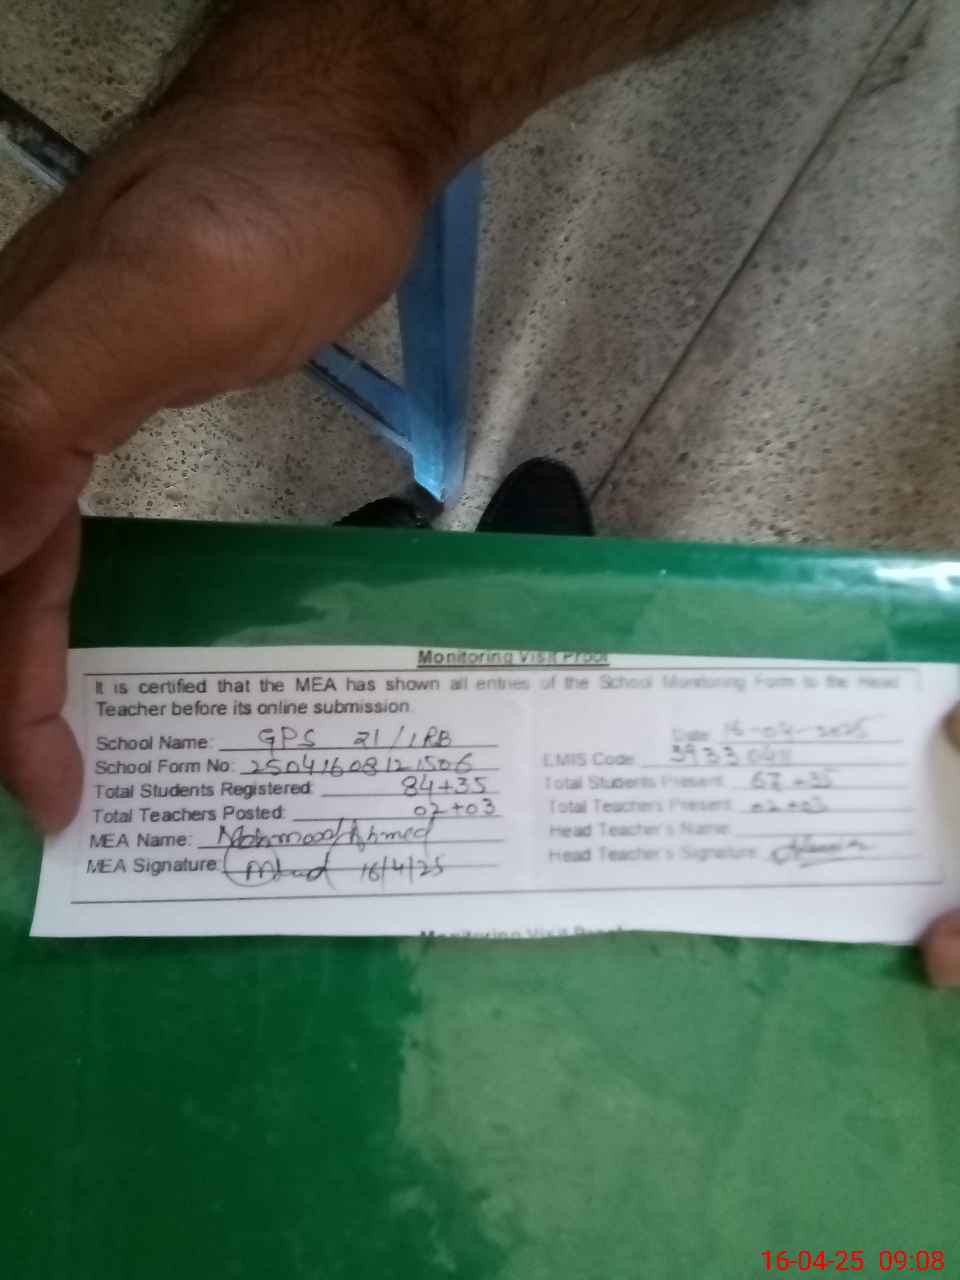 Monitoring Visit Proof
It is certified that the MEA has shown all entries of the School Monitoring Form to the Head
Teacher before its online submission.
Date: 16-04-2025
School Name: GPS 21/1RB
EMIS Code:
School Form No: 25041608121506
Total Students Registered: 84+35
Total Students Present: 67+35
Total Teachers Posted: 02+03
Total Teachers Present: 02+03
MEA Name: Mahmood Ahmed
Head Teacher's Name:
MEA Signature: 16/4/25
Head Teacher's Signature:
Monitoring Visit Proof
16-04-25 09:08